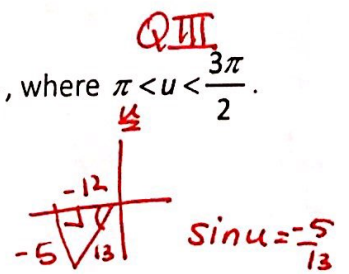 QIII
, where π < u < 3π/2 .
u
-12
-5
13
sin u = -5/13